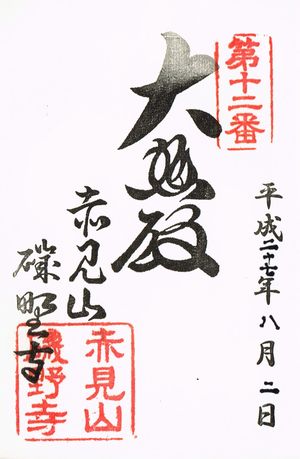 第十二番
平成二十七年八月二日
大悲殿
赤見山
磯野寺
赤見山
磯野寺